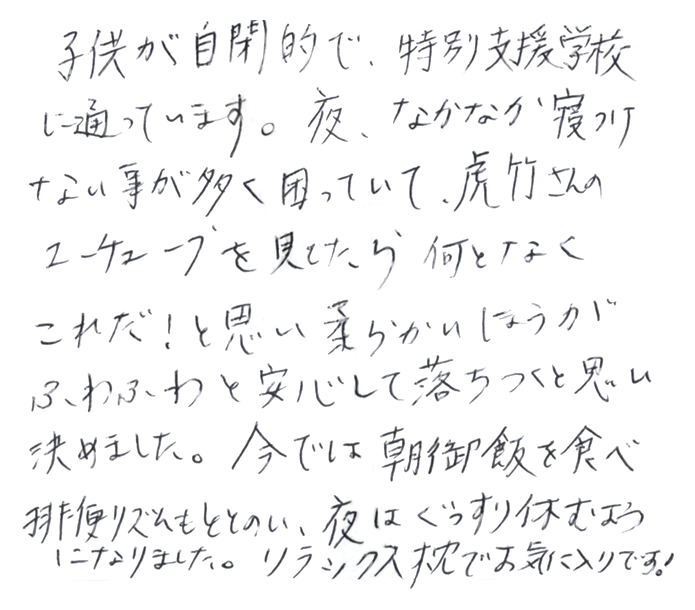 子供が自閉的で、特別支援学校
に通っています。夜、なかなか寝つけ
ない事が多く困っていて、虎竹さんの
ユーチューブを見てたら何となく
これだ!と思い柔らかいほうが
ふわふわと安心して落ちつくと思い
決めました。今では朝御飯を食べ
排便リズムもととのい、夜はぐっすり休むよう
になりました。リラックス枕でお気に入りです!